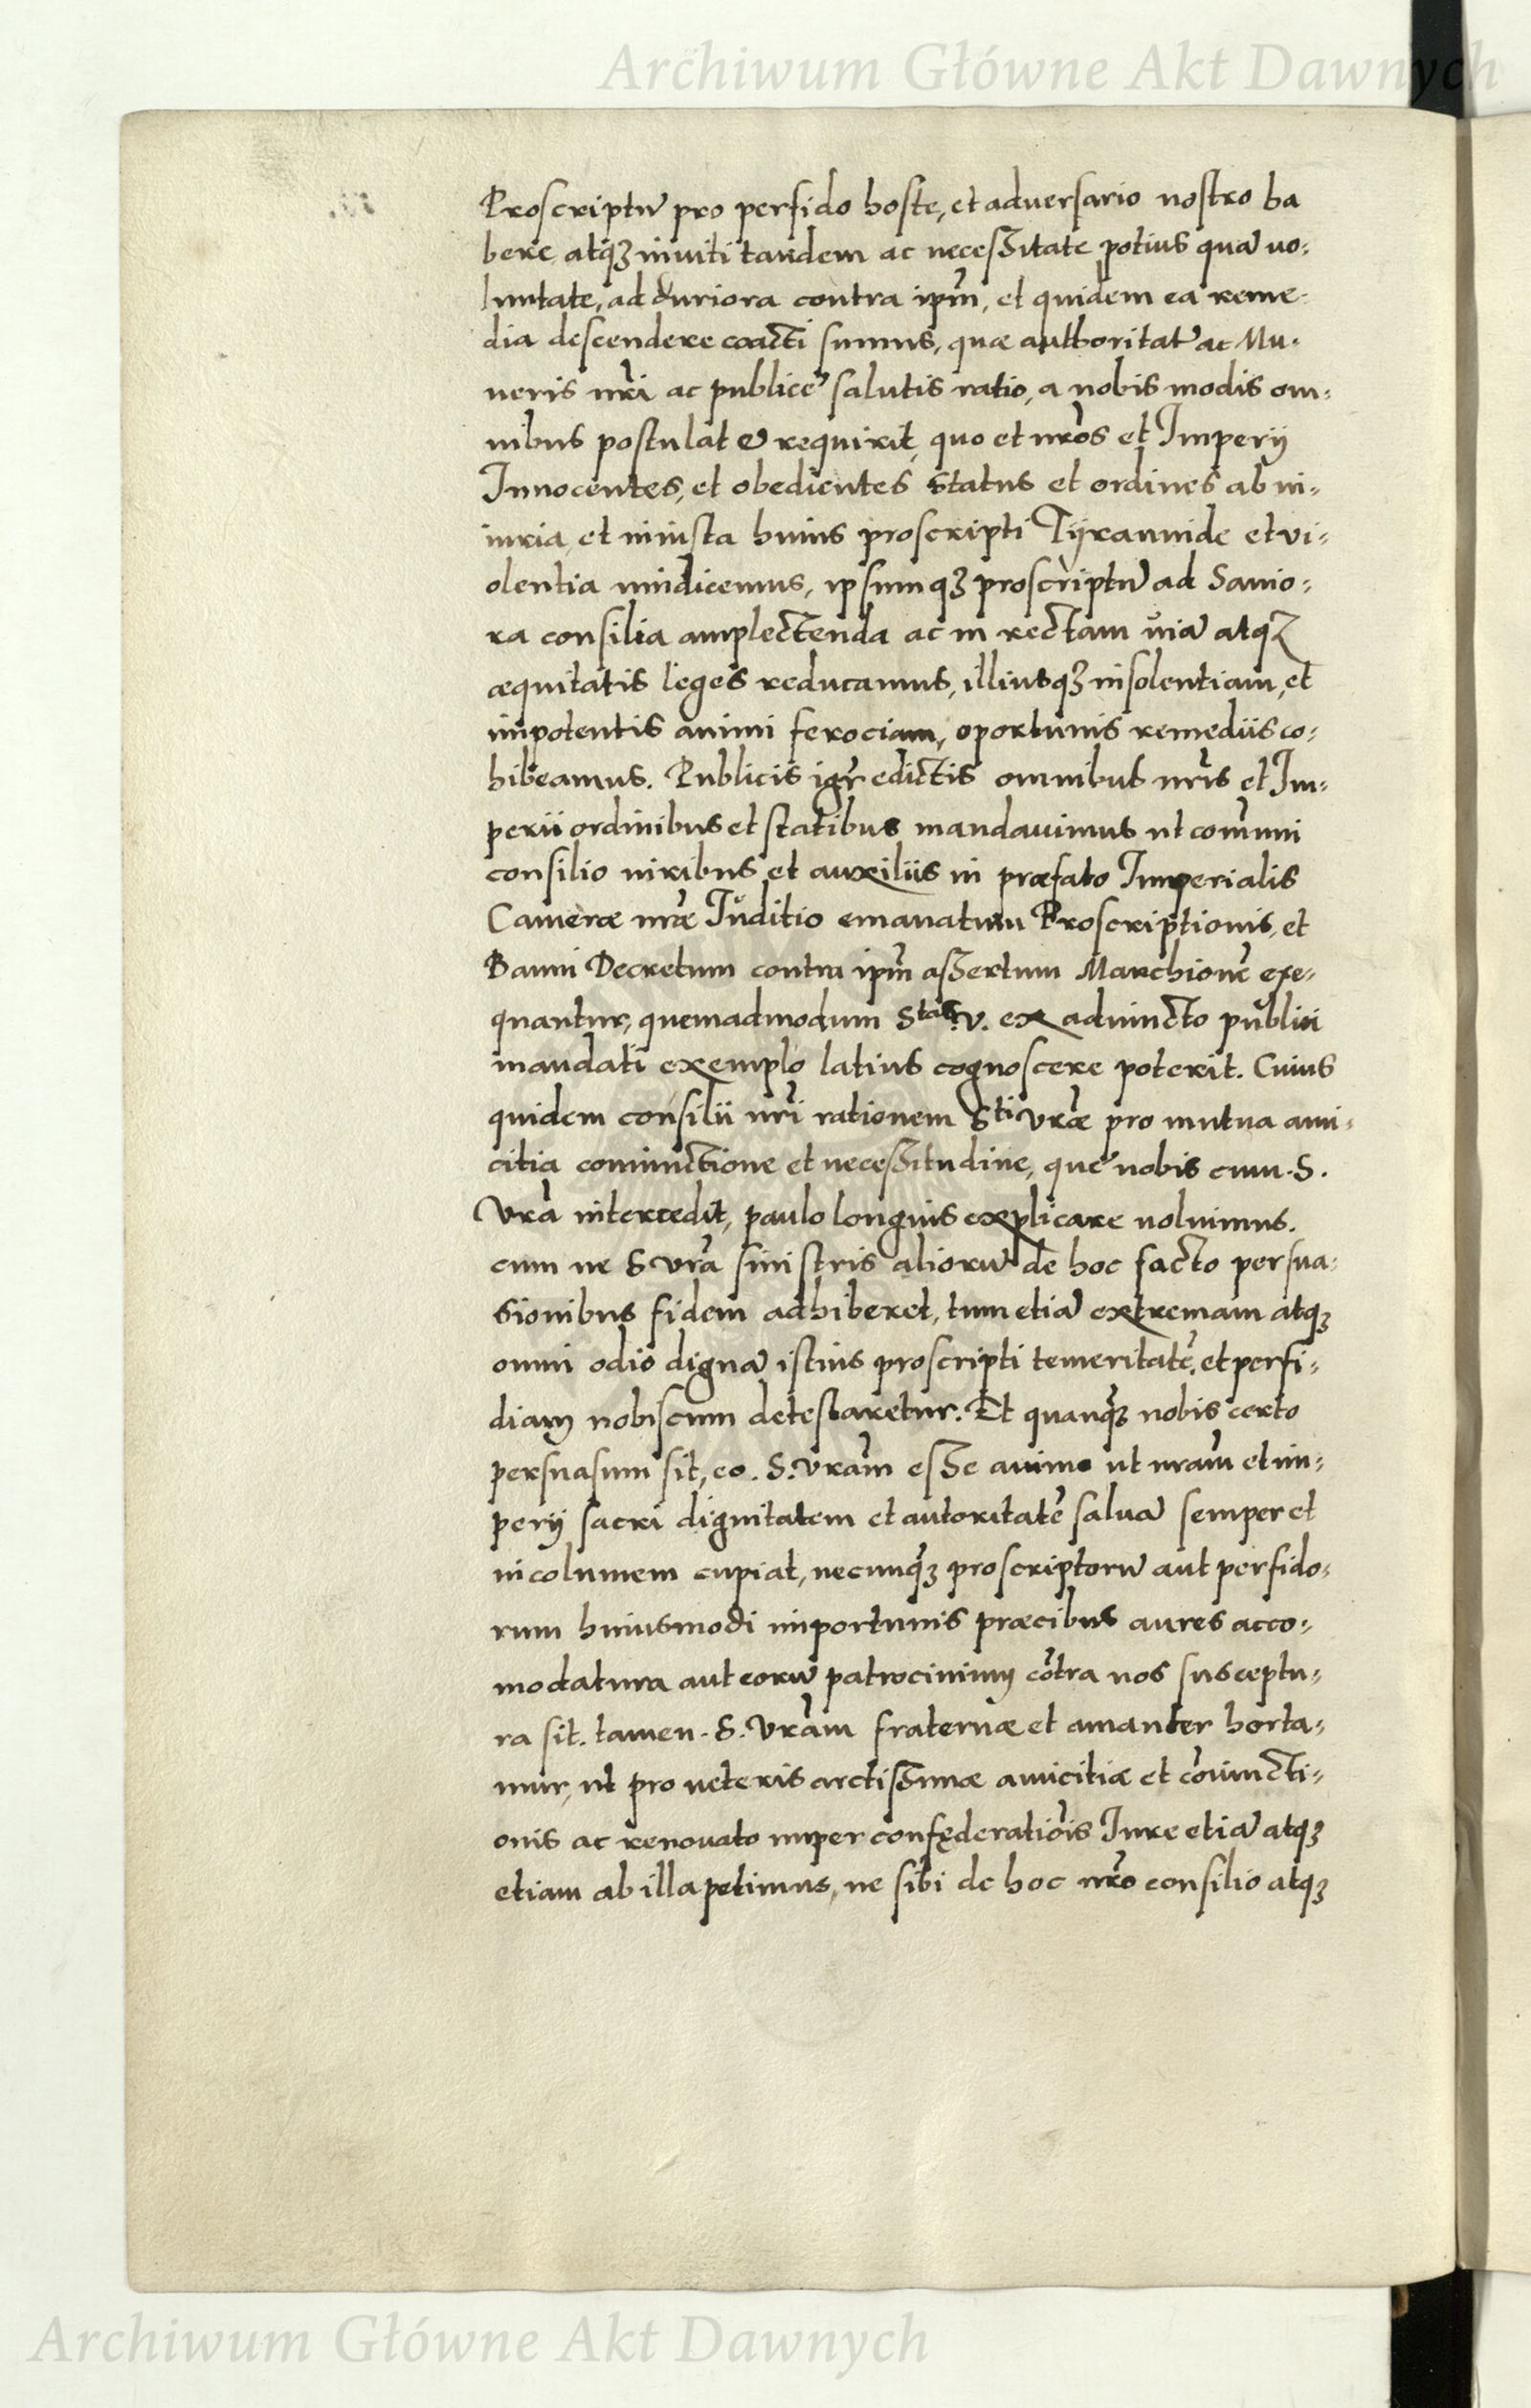 Archiwum Główne Akt Dawnych
Proscriptũ pro perfido hoste, et adversario nostro ha
bere, atqꝫ inviti tandem ac necessitate potius quã vo-
luntate, ad duriora contra ip̃m, et quidem ea reme-
dia descendere coacti sumus, quae authoritat⁹ ac Mu-
neris nr̃i ac publicę salutis ratio, a nobis modis om-
nibus postulat & requirit, quo et nr̃os et Imperij
Innocentes, et obedientes status et ordines ab in-
iuria, et iniusta huius proscripti Tÿrannide et vi-
olentia vindicemus, ipsumqꝫ proscriptũ ad Sanio-
ra consilia amplectenda ac in rectam viã atqꝫ
æquitatis leges reducamus, illiusqꝫ insolentiam, et
impotentis animi ferociam, oportunis remediis co-
hibeamus. Publicis igr̃ edictis omnibus nr̃is et Im-
perii ordinibus et statibus mandauimus ut com̃uni
consilio uiribus et auxiliis in præfato Imperialis
Cameræ nr̃æ Iŭditio emanatum Proscriptionis, et
Banni Decretum contra ip̃m assertum Marchionẽ exe-
quantur, quemadmodum Stas. v. ex adiuncto publici
mandati exemplo latius cognoscere poterit. Cuius
quidem consilii nr̃i rationem Sti vr̃æ pro mutua ami-
citia coniunctione et necessitudine, quę nobis cum. S.
vr̃a intercedit, paulo longius explicare uoluimus.
cum ne S vr̃a sinistris aliorũ de hoc facto persua-
sionibus fidem adhiberet, tum etiã extremam atqꝫ
omni odio dignã istius proscripti temeritatẽ, et perfi-
diam nobiscum detestaretur. Et quanq̃ꝫ nobis certo
persuasum sit, eo. S. vr̃am esse animo ut nr̃am et im-
perij sacri dignitatem et autoritatẽ saluã semper et
incolumem cupiat, necunq̃ꝫ proscriptorũ aut perfido-
rum huiusmodi importunis præcibus aures acco-
modatura aut eorũ patrocinium cõtra nos susceptu-
ra sit. tamen. S. vr̃am fraternæ et amanter horta-
mur, ut pro ueteris arctissimæ amicitiæ et cõiuncti-
onis ac renouato nuper confęderatiõis Iure etiã atqꝫ
etiam ab illa petimus, ne sibi de hoc nr̃o consilio atqꝫ
Archiwum Główne Akt Dawnych